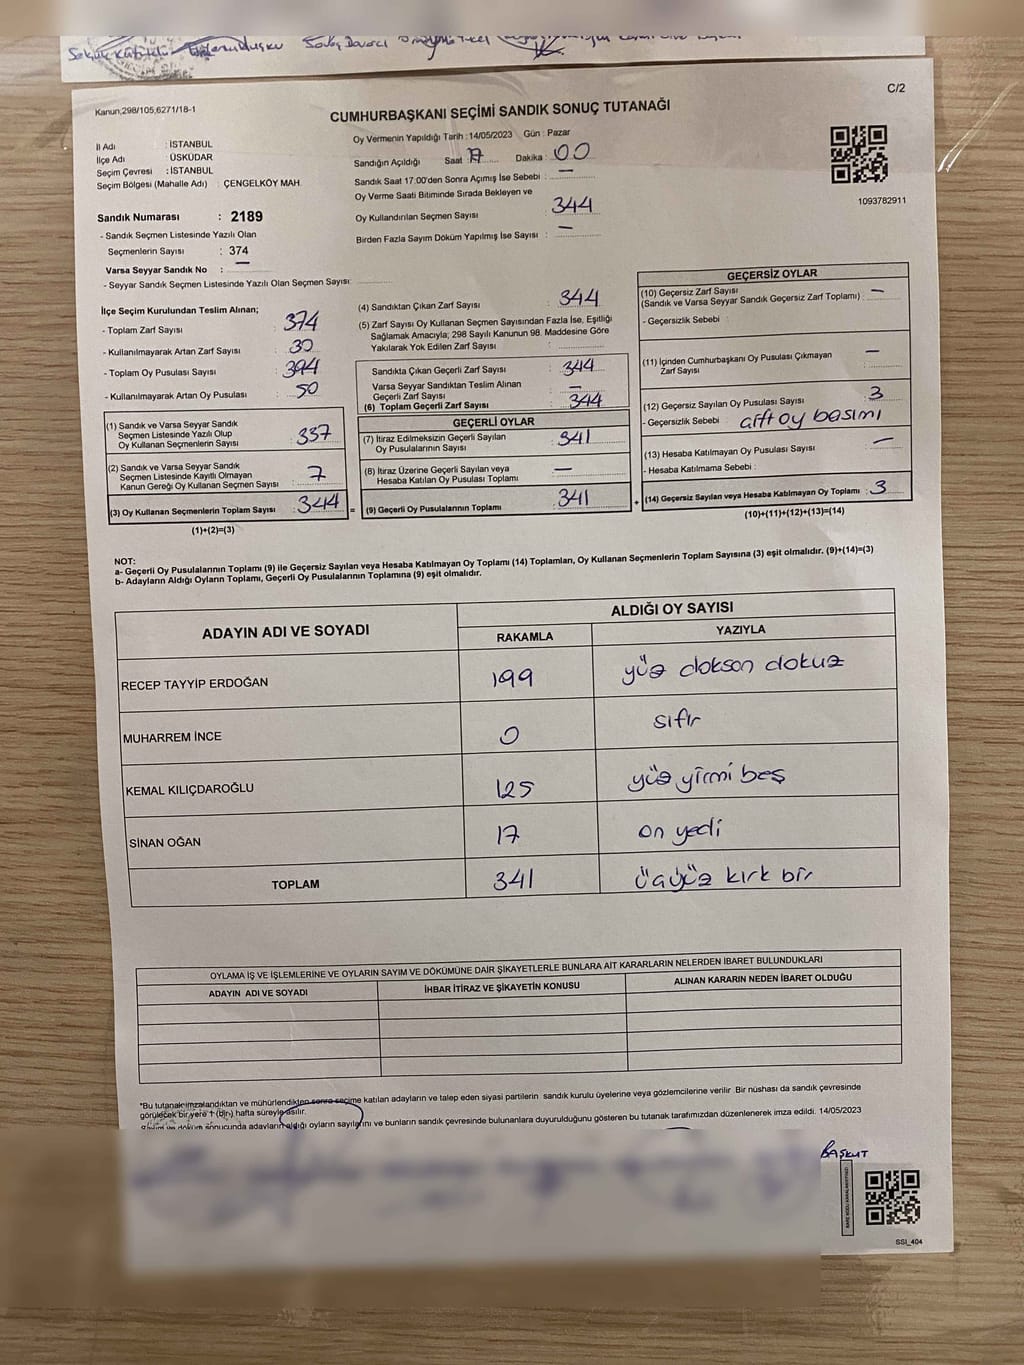 Kanun;298/105,6271/18-1
C/2
CUMHURBAŞKANI SEÇİMİ SANDIK SONUÇ TUTANAĞI
İl Adı : İSTANBUL
İlçe Adı : ÜSKÜDAR
Seçim Çevresi : İSTANBUL
Seçim Bölgesi (Mahalle Adı) : ÇENGELKÖY MAH.
Oy Vermenin Yapıldığı Tarih : 14/05/2023 Gün : Pazar
Sandığın Açıldığı Saat : 17 Dakika : 00
Sandık Saat 17:00'den Sonra Açımış İse Sebebi : —
Oy Verme Saati Bitiminde Sırada Bekleyen ve
Oy Kullandırılan Seçmen Sayısı 344
Birden Fazla Sayım Döküm Yapılmış İse Sayısı : —
1093782911
Sandık Numarası : 2189
- Sandık Seçmen Listesinde Yazılı Olan
Seçmenlerin Sayısı : 374
Varsa Seyyar Sandık No : —
- Seyyar Sandık Seçmen Listesinde Yazılı Olan Seçmen Sayısı:
İlçe Seçim Kurulundan Teslim Alınan;
- Toplam Zarf Sayısı : 374
- Kullanılmayarak Artan Zarf Sayısı : 30
- Toplam Oy Pusulası Sayısı : 394
- Kullanılmayarak Artan Oy Pusulası : 50
(1) Sandık ve Varsa Seyyar Sandık
Seçmen Listesinde Yazılı Olup
Oy Kullanan Seçmenlerin Sayısı : 337
(2) Sandık ve Varsa Seyyar Sandık
Seçmen Listesinde Kayıtlı Olmayan
Kanun Gereği Oy Kullanan Seçmen Sayısı : 7
(3) Oy Kullanan Seçmenlerin Toplam Sayısı : 344
(1)+(2)=(3)
(4) Sandıktan Çıkan Zarf Sayısı : 344
(5) Zarf Sayısı Oy Kullanan Seçmen Sayısından Fazla İse, Eşitliği
Sağlamak Amacıyla; 298 Sayılı Kanunun 98. Maddesine Göre
Yakılarak Yok Edilen Zarf Sayısı :
Sandıkta Çıkan Geçerli Zarf Sayısı : 344
Varsa Seyyar Sandıktan Teslim Alınan
Geçerli Zarf Sayısı : —
(6) Toplam Geçerli Zarf Sayısı : 344
GEÇERLİ OYLAR
(7) İtiraz Edilmeksizin Geçerli Sayılan
Oy Pusulasının Sayısı : 341
(8) İtiraz Üzerine Geçerli Sayılan veya
Hesaba Katılan Oy Pusulası Toplamı : —
= (9) Geçerli Oy Pusulalarının Toplamı : 341
GEÇERSİZ OYLAR
(10) Geçersiz Zarf Sayısı
(Sandık ve Varsa Seyyar Sandık Geçersiz Zarf Toplamı) : —
- Geçersizlik Sebebi :
(11) İçinden Cumhurbaşkanı Oy Pusulası Çıkmayan
Zarf Sayısı : —
(12) Geçersiz Sayılan Oy Pusulası Sayısı : 3
- Geçersizlik Sebebi : çift oy basımı
(13) Hesaba Katılmayan Oy Pusulası Sayısı : —
- Hesaba Katılmama Sebebi :
+ (14) Geçersiz Sayılan veya Hesaba Katılmayan Oy Toplamı : 3
(10)+(11)+(12)+(13)=(14)
NOT:
a- Geçerli Oy Pusulalarının Toplamı (9) ile Geçersiz Sayılan veya Hesaba Katılmayan Oy Toplamı (14) Toplamları, Oy Kullanan Seçmenlerin Toplam Sayısına (3) eşit olmalıdır. (9)+(14)=(3)
b- Adayların Aldığı Oyların Toplamı, Geçerli Oy Pusulalarının Toplamına (9) eşit olmalıdır.
ADAYIN ADI VE SOYADI
ALDIĞI OY SAYISI
RAKAMLA YAZIYLA
RECEP TAYYİP ERDOĞAN 199 yüz doksan dokuz
MUHARREM İNCE 0 sıfır
KEMAL KILIÇDAROĞLU 125 yüz yirmi beş
SİNAN OĞAN 17 on yedi
TOPLAM 341 üçyüz kırk bir
OYLAMA İŞ VE İŞLEMLERİNE VE OYLARIN SAYIM VE DÖKÜMÜNE DAİR ŞİKAYETLERLE BUNLARA AİT KARARLARIN NELERDEN İBARET BULUNDUKLARI
ADAYIN ADI VE SOYADI İHBAR İTİRAZ VE ŞİKAYETİN KONUSU ALINAN KARARIN NEDEN İBARET OLDUĞU
*Bu tutanak imzalandıktan ve mühürlendikten sonra seçime katılan adayların ve talep eden siyasi partilerin sandık kurulu üyelerine veya gözlemcilerine verilir Bir nüshası da sandık çevresinde
görülecek bir yere 1 (bir) hafta süreyle asılır.
sonucunda adayların aldığı oyların sayılarını ve bunların sandık çevresinde bulunanlara duyurulduğunu gösteren bu tutanak tarafımızdan düzenlenerek imza edildi. 14/05/2023
BAŞKUT
SSI_404